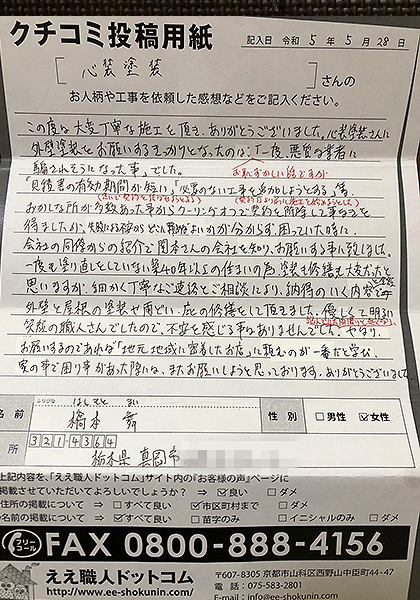 クチコミ投稿用紙
記入日 令和 5年 5月 28日
[心装塗装]さんの
お人柄や工事を依頼した感想などをご記入ください。
この度は大変丁寧な施工を頂き、ありがとうございました。心装塗装さんに
外壁塗装をお願いするきっかけとなったのは、「一度、悪質な業者に
お恥ずかしい話ですが
騙されそうになった事」でした。
「見積書の有効期間が短い」「必要のない工事を追加しようとする」等、
おかしな所が多数あった事からクーリングオフで契約を解除して事なきを
得ましたが、
困っていた時に、
会社の同僚からの紹介で関本さんの会社を知り、お願いする事に致しました。
一度も塗り直しをしていない築40年以上の住まいの為、塗装も修繕も大変だったと
思いますが、細かく丁寧なご連絡とご相談により、納得のいく内容で
外壁と屋根の塗装や雨どい、庇の修繕をして頂きました。優しくて明るい
笑顔の職人さんでしたので、不安を感じる事はありませんでした。やはり、
お願いするのであれば「地元地域に密着したお店」に頼むのが一番だと学び、
家の事で困り事があった際には、またお願いしようと思っております。ありがとうございました
名前
ふりがな はしもと まい
橋本 舞
性別 □男性 ☑女性
所
321-4364
栃木県 真岡市
上記内容を、「ええ職人ドットコム」サイト内の『お客様の声』ページに
掲載させていただいてよろしいでしょうか? ⇒ ☑良い □ダメ
住所の掲載について ⇒ □すべて良い ☑市区町村まで □ダメ
の名前の掲載について ⇒ ☑すべて良い □苗字のみ □イニシャルのみ □ダメ
フリーコール FAX 0800-888-4156
ええ職人ドットコム
http://www.ee-shokunin.com/
〒607-8305 京都市山科区西野山中臣町44-47
電話:075-583-2801
E-mail:info@ee-shokunin.com